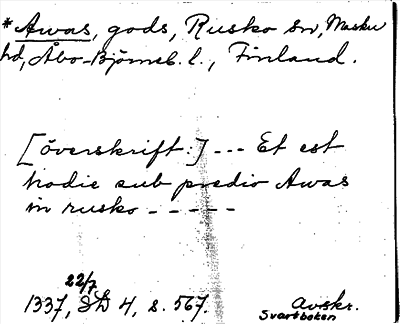 *Awas, gods, Rusko sn, Masku
hd, Åbo-Björneb. l., Finland.
[överskrift:] --- Et est
hodie sub predio Awas
in rusko -----
22/7
1337, SD 4, s. 567. Avskr.
Svartboken